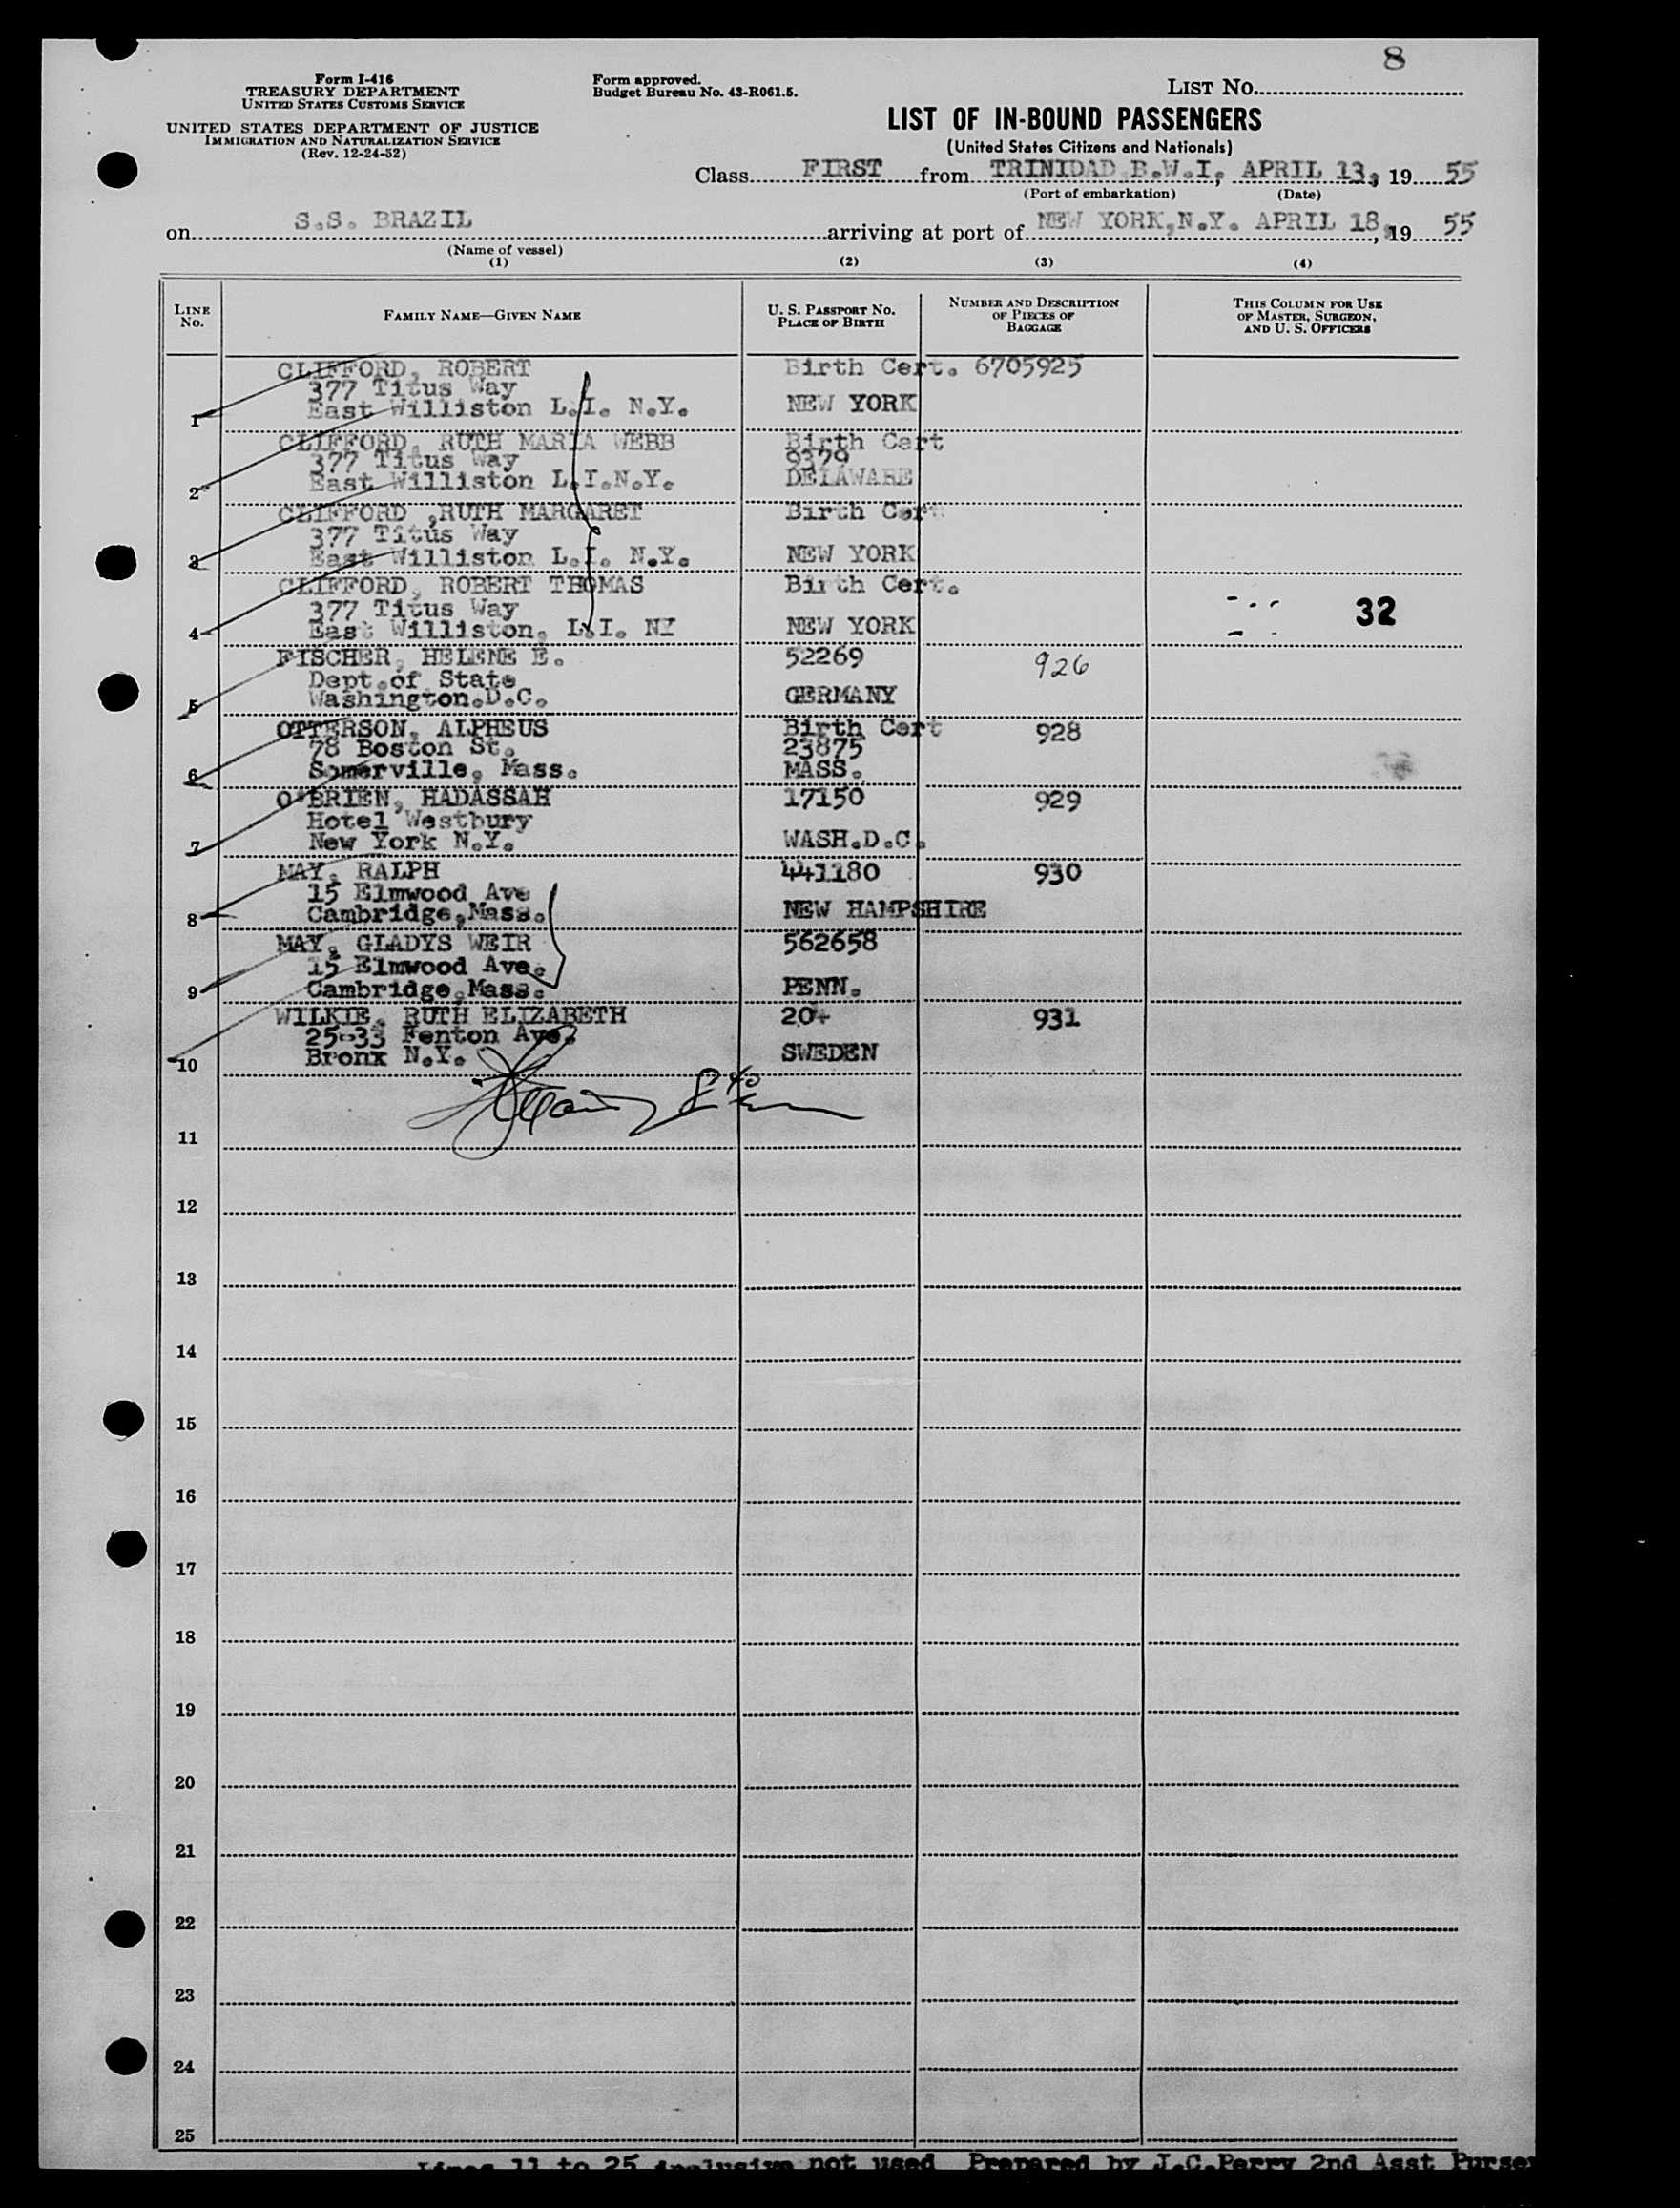 8
Form I-416
TREASURY DEPARTMENT
UNITED STATES CUSTOMS SERVICE
UNITED STATES DEPARTMENT OF JUSTICE
IMMIGRATION AND NATURALIZATION SERVICE
(Rev. 12-24-52)
Form approved.
Budget Bureau No. 43-R061.5.
LIST NO.
LIST OF IN-BOUND PASSENGERS
(United States Citizens and Nationals)
Class FIRST from TRINIDAD B.W.I, APRIL 13, 19 55
(Port of embarkation) (Date)
on S.S. BRAZIL arriving at port of NEW YORK,N.Y. APRIL 18, 19 55
(Name of vessel)
(1) (2) (3) (4)
LINE NO. FAMILY NAME—GIVEN NAME U. S. PASSPORT NO. PLACE OF BIRTH NUMBER AND DESCRIPTION OF PIECES OF BAGGAGE THIS COLUMN FOR USE OF MASTER, SURGEON, AND U. S. OFFICERS
CLIFFORD, ROBERT Birth Cert. 6705925
377 Titus Way
1 East Williston L.I. N.Y. NEW YORK
CLIFFORD, RUTH MARIA WEBB Birth Cert
377 Titus Way 9379
2 East Williston L.I.N.Y. DELAWARE
CLIFFORD ,RUTH MARGARET Birth Cert.
377 Titus Way
3 East Williston L.I. N.Y. NEW YORK
CLIFFORD, ROBERT THOMAS Birth Cert.
377 Titus Way 32
4 East Williston, L.I. NY NEW YORK
FISCHER, HELENE E. 52269 926
Dept.of State
5 Washington.D.C. GERMANY
OTTERSON, ALPHEUS Birth Cert 928
78 Boston St. 23875
6 Somerville, Mass. MASS.
O'BRIEN, HADASSAH 17150 929
Hotel Westbury
7 New York N.Y. WASH.D.C.
MAY, RALPH 441180 930
15 Elmwood Ave
8 Cambridge,Mass. NEW HAMPSHIRE
MAY, GLADYS WEIR 562658
15 Elmwood Ave.
9 Cambridge,Mass. PENN.
WILKIE, RUTH ELIZABETH 204 931
25-33 Fenton Ave.
10 Bronx N.Y. SWEDEN
11
12
13
14
15
16
17
18
19
20
21
22
23
24
25
Lines 11 to 25 inclusive not used Prepared by J.C.Perry 2nd Asst Purser